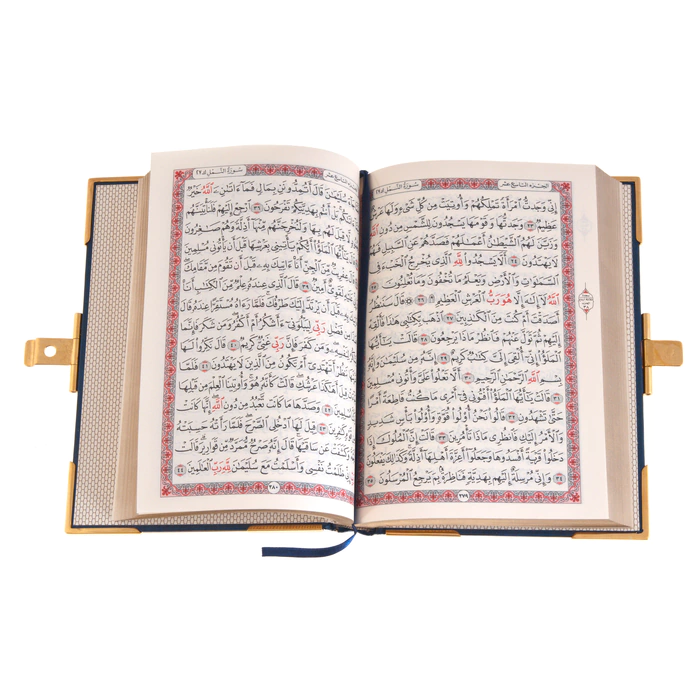 الجزء التاسع عشر سورة النمل ٢٧
إِنِّي وَجَدتُّ ٱمْرَأَةً تَمْلِكُهُمْ وَأُوتِيَتْ مِن كُلِّ شَيْءٍ وَلَهَا عَرْشٌ
عَظِيمٌ ٢٣ وَجَدتُّهَا وَقَوْمَهَا يَسْجُدُونَ لِلشَّمْسِ مِن دُونِ ٱللَّهِ
وَزَيَّنَ لَهُمُ ٱلشَّيْطَٰنُ أَعْمَٰلَهُمْ فَصَدَّهُمْ عَنِ ٱلسَّبِيلِ فَهُمْ
لَا يَهْتَدُونَ ٢٤ أَلَّا يَسْجُدُوا۟ لِلَّهِ ٱلَّذِي يُخْرِجُ ٱلْخَبْءَ فِي
ٱلسَّمَٰوَٰتِ وَٱلْأَرْضِ وَيَعْلَمُ مَا تُخْفُونَ وَمَا تُعْلِنُونَ ٢٥
ٱللَّهُ لَآ إِلَٰهَ إِلَّا هُوَ رَبُّ ٱلْعَرْشِ ٱلْعَظِيمِ ۩ ٢٦ قَالَ سَنَنظُرُ
أَصَدَقْتَ أَمْ كُنتَ مِنَ ٱلْكَٰذِبِينَ ٢٧ ٱذْهَب بِّكِتَٰبِي هَٰذَا فَأَلْقِهْ
إِلَيْهِمْ ثُمَّ تَوَلَّ عَنْهُمْ فَٱنظُرْ مَاذَا يَرْجِعُونَ ٢٨ قَالَتْ يَٰٓأَيُّهَا
ٱلْمَلَؤُا۟ إِنِّيٓ أُلْقِيَ إِلَيَّ كِتَٰبٌ كَرِيمٌ ٢٩ إِنَّهُۥ مِن سُلَيْمَٰنَ وَإِنَّهُۥ
بِسْمِ ٱللَّهِ ٱلرَّحْمَٰنِ ٱلرَّحِيمِ ٣٠ أَلَّا تَعْلُوا۟ عَلَيَّ وَأْتُونِي مُسْلِمِينَ
٣١ قَالَتْ يَٰٓأَيُّهَا ٱلْمَلَؤُا۟ أَفْتُونِي فِيٓ أَمْرِي مَا كُنتُ قَاطِعَةً أَمْرًا
حَتَّىٰ تَشْهَدُونِ ٣٢ قَالُوا۟ نَحْنُ أُو۟لُوا۟ قُوَّةٍ وَأُو۟لُوا۟ بَأْسٍ شَدِيدٍ
وَٱلْأَمْرُ إِلَيْكِ فَٱنظُرِي مَاذَا تَأْمُرِينَ ٣٣ قَالَتْ إِنَّ ٱلْمُلُوكَ إِذَا
دَخَلُوا۟ قَرْيَةً أَفْسَدُوهَا وَجَعَلُوٓا۟ أَعِزَّةَ أَهْلِهَآ أَذِلَّةً وَكَذَٰلِكَ يَفْعَلُونَ
٣٤ وَإِنِّي مُرْسِلَةٌ إِلَيْهِم بِهَدِيَّةٍ فَنَاظِرَةٌۢ بِمَ يَرْجِعُ ٱلْمُرْسَلُونَ ٣٥
٣٧٩
التاسع عشر سورة النمل ٢٧
سُلَيْمَٰنَ قَالَ أَتُمِدُّونَنِ بِمَالٍ فَمَآ ءَاتَىٰنِۦَ ٱللَّهُ خَيْرٌ
بَلْ أَنتُم بِهَدِيَّتِكُمْ تَفْرَحُونَ ٣٦ ٱرْجِعْ إِلَيْهِمْ فَلَنَأْتِيَنَّهُم
لَّا قِبَلَ لَهُم بِهَا وَلَنُخْرِجَنَّهُم مِّنْهَآ أَذِلَّةً وَهُمْ صَٰغِرُونَ
ٱلْمَلَؤُا۟ أَيُّكُمْ يَأْتِينِي بِعَرْشِهَا قَبْلَ أَن يَأْتُونِي مُسْلِمِينَ
مِّنَ ٱلْجِنِّ أَنَا۠ ءَاتِيكَ بِهِۦ قَبْلَ أَن تَقُومَ مِن مَّقَامِكَ
أَمِينٌ ٣٩ قَالَ ٱلَّذِي عِندَهُۥ عِلْمٌ مِّنَ
قَبْلَ أَن يَرْتَدَّ إِلَيْكَ طَرْفُكَ فَلَمَّا رَءَاهُ مُسْتَقِرًّا عِندَهُۥ قَالَ
فَضْلِ رَبِّي لِيَبْلُوَنِيٓ ءَأَشْكُرُ أَمْ أَكْفُرُ وَمَن شَكَرَ فَإِنَّمَا
وَمَن كَفَرَ فَإِنَّ رَبِّي غَنِيٌّ كَرِيمٌ ٤٠ قَالَ نَكِّرُوا۟ لَهَا
أَتَهْتَدِيٓ أَمْ تَكُونُ مِنَ ٱلَّذِينَ لَا يَهْتَدُونَ ٤١ فَلَمَّا
قِيلَ أَهَٰكَذَا عَرْشُكِ قَالَتْ كَأَنَّهُۥ هُوَ وَأُوتِينَا ٱلْعِلْمَ مِن قَبْلِهَا
٤٢ وَصَدَّهَا مَا كَانَت تَّعْبُدُ مِن دُونِ ٱللَّهِ إِنَّهَا كَانَتْ
٤٣ قِيلَ لَهَا ٱدْخُلِي ٱلصَّرْحَ فَلَمَّا رَأَتْهُ حَسِبَتْهُ
وَكَشَفَتْ عَن سَاقَيْهَا قَالَ إِنَّهُۥ صَرْحٌ مُّمَرَّدٌ مِّن قَوَارِيرَ قَالَتْ
ظَلَمْتُ نَفْسِي وَأَسْلَمْتُ مَعَ سُلَيْمَٰنَ لِلَّهِ رَبِّ ٱلْعَٰلَمِينَ ٤٤
٣٨٠